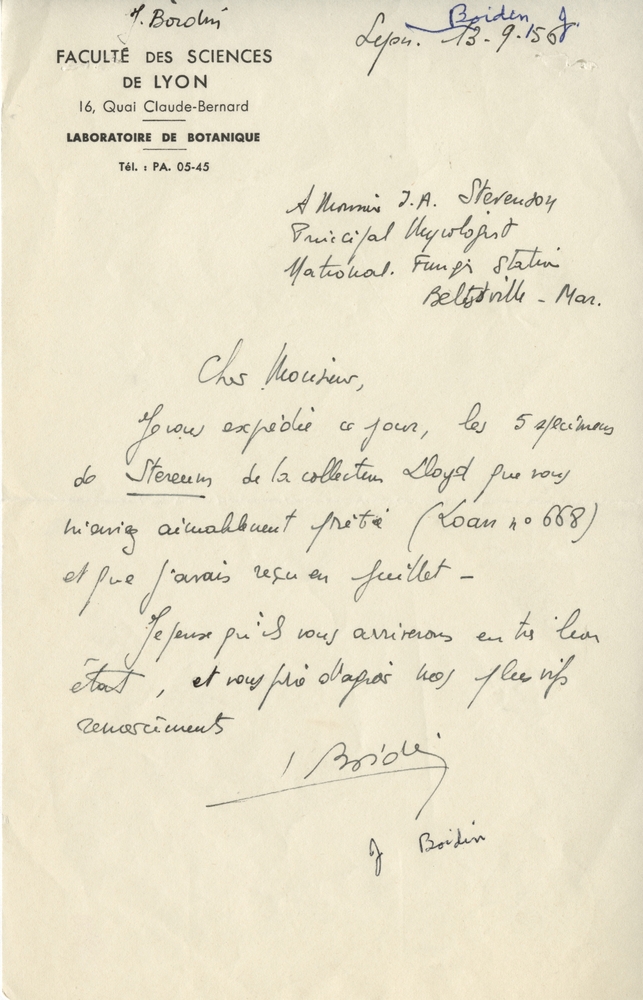 J. Boidin
Boiden J.
FACULTÉ DES SCIENCES
DE LYON
16, Quai Claude-Bernard
LABORATOIRE DE BOTANIQUE
Tél. : PA. 05-45
13-9-56
A Monsieur J.A. Stevenson
Principal Mycologist
National. Fungi Station
Beltsville - Mar.
Cher Monsieur,
Je vous expédie ce jour, les 5 specimens
de Stereum de la collection Lloyd que vous
m'aviez aimablement prêté (Loan n° 668)
et que j'avais reçu en juillet -
Je pense qu'ils vous arriverons en très bon
état, et vous prie d'agréer mes plus vifs
remerciements
J Boidin
J Boidin